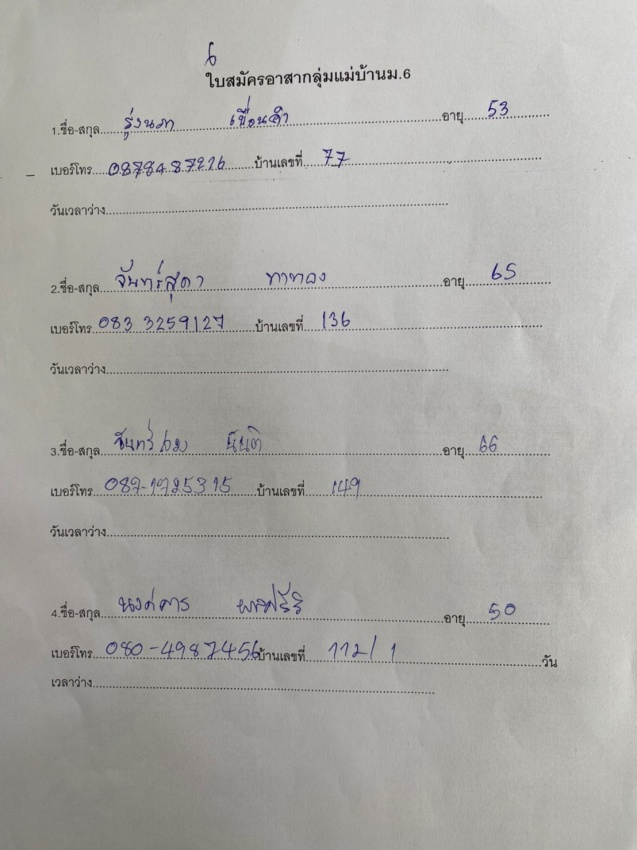 6
ใบสมัครอาสากลุ่มแม่บ้านม.6
1.ชื่อ-สกุล รุ่งนภา เขื่อนคำ อายุ 53
เบอร์โทร 0878487216 บ้านเลขที่ 77
วันเวลาว่าง
2.ชื่อ-สกุล จันทร์สุดา ทาทอง อายุ 65
เบอร์โทร 083 3259127 บ้านเลขที่ 136
วันเวลาว่าง
3.ชื่อ-สกุล นันติ อายุ 66
เบอร์โทร บ้านเลขที่ 149
วันเวลาว่าง
4.ชื่อ-สกุล อายุ 50
เบอร์โทร 080-4987456 บ้านเลขที่ 112/1 วัน
เวลาว่าง